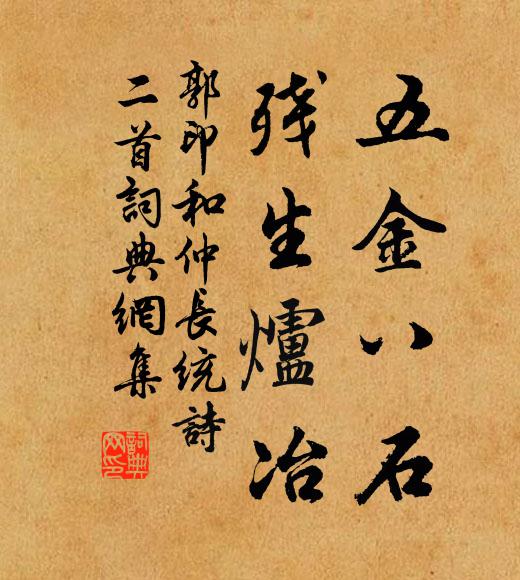 五金八石
残生爐冶
郭印和仲長統詩
二首詞典網集
詞典
网印